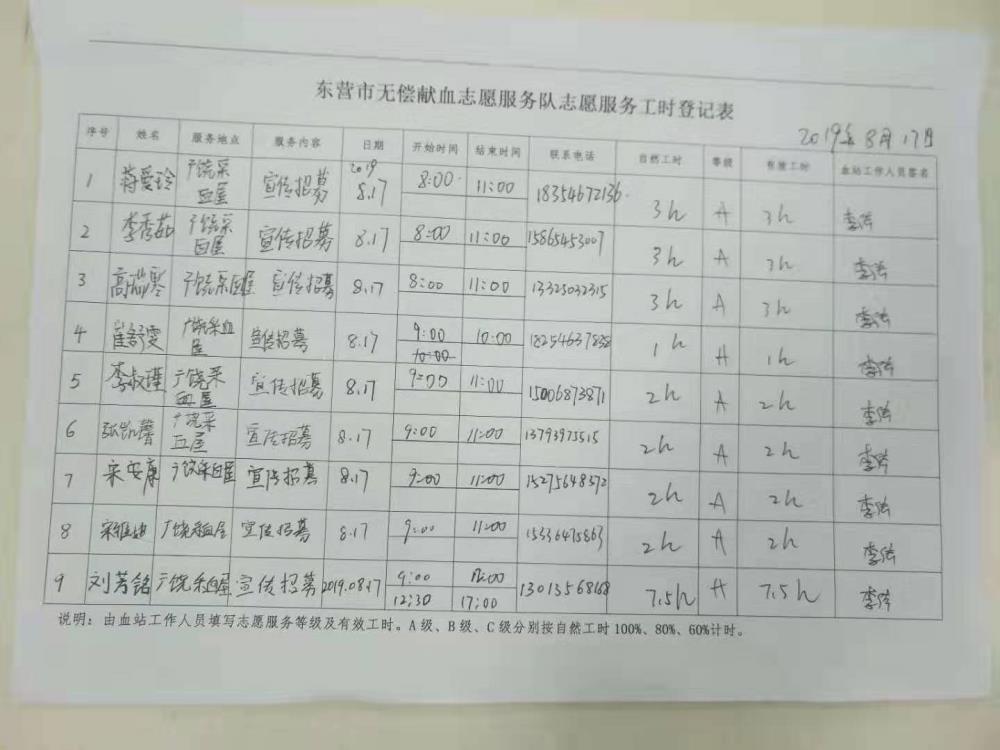 东营市无偿献血志愿服务队志愿服务工时登记表
2019年8月17日
序号 姓名 服务地点 服务内容 日期 开始时间 结束时间 联系电话 自然工时 等级 有效工时 血站工作人员签名
1 蒋爱玲 广饶采血屋 宣传招募 2019 8.17 8:00 11:00 18354672136 3h A 3h
2 李秀茹 广饶采血屋 宣传招募 8.17 8:00 11:00 15865453007 3h A 3h
3 广饶采血屋 宣传招募 8.17 8:00 11:00 13325032315 3h A 3h
4 崔舒雯 广饶采血屋 宣传招募 8.17 9:00 10:00 18254637838 1h A 1h
10:00
5 李 广饶采血屋 宣传招募 8.17 9:00 11:00 15006873871 2h A 2h
6 张凯馨 广饶采血屋 宣传招募 8.17 9:00 11:00 13793975515 2h A 2h
7 宋安康 广饶采血屋 宣传招募 8.17 9:00 11:00 15275648372 2h A 2h
8 宋 广饶采血屋 宣传招募 8.17 9:00 11:00 15336475863 2h A 2h
9 刘芳铭 广饶采血屋 宣传招募 2019.08.17 9:00 12:00 13013568168 7.5h A 7.5h
12:30 17:00
说明：由血站工作人员填写志愿服务等级及有效工时。A级、B级、C级分别按自然工时100%、80%、60%计时。